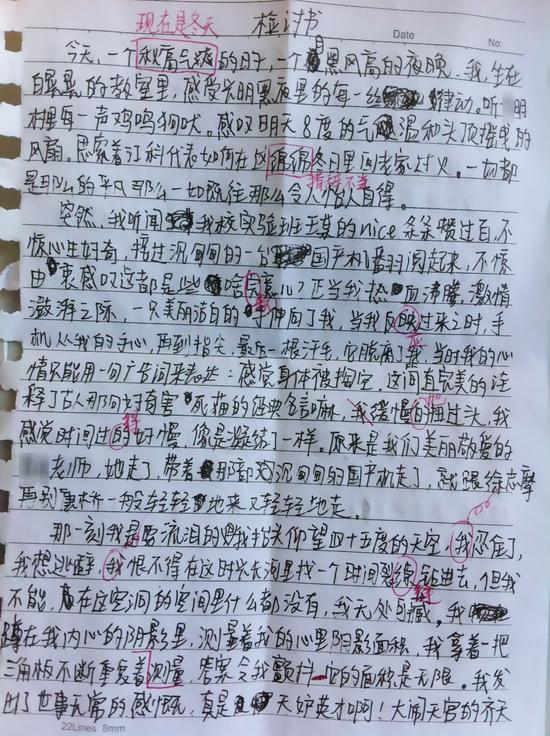 现在是冬天
检讨书
Date
No.
今天,一个秋高气爽的日子,一个月黑风高的夜晚,我,坐在
白晃晃的教室里,感受光明黑夜里的每一丝律动。听明
村里每一声鸡鸣狗吠。感叹明天8度的气温和头顶摇晃的
风扇。思索着江科代表如何在这炎炎冬日里回老家过火。一切都
措辞不当
是那么的平凡那么一如既往那么令人怡人自得。
突然,我听闻我校实验班王某的nice条条赞过百,不
惊心生好奇,捂过沉甸甸的一台国产机翻阅起来,不惊
由衷感叹这都是些啥玩意儿?正当我热血沸腾,激情
澎湃之际,一只美丽洁白的手伸向了我,当我反映过来之时,手
应
机从我的手心,再到指尖,最后一根汗毛,它脱离了我,当时我的心
情只能用一句广告词来表达:感觉身体被掏空,这简直完美的诠
释了古人那句好奇害死猫的经典名言嘛,我缓慢的扭过头,我
地
得
感觉时间过的好慢,像是凝结了一样。原来是我们美丽敬爱的
老师,她走了,带着那部沉甸甸的国产机走了,就跟徐志摩
再别康桥一般轻轻地来又轻轻地走。
那一刻我是要流泪的啊我抬头仰望四十五度的天空,我忍住了,
我想逃避,我恨不得在这时光长河里找一个时间裂缝钻进去,但我
不能,在这空洞的空间里什么都没有,我无处可藏。我
缝
蹲在我内心的阴影里,测量着我的心里阴影面积,我拿着一把
三角板不断重复着测量,答案令我颤抖,它的面积是无限。我发
出了世事无常的感慨,真是天妒英才啊!大闹天宫的齐天
22Lines. 8mm